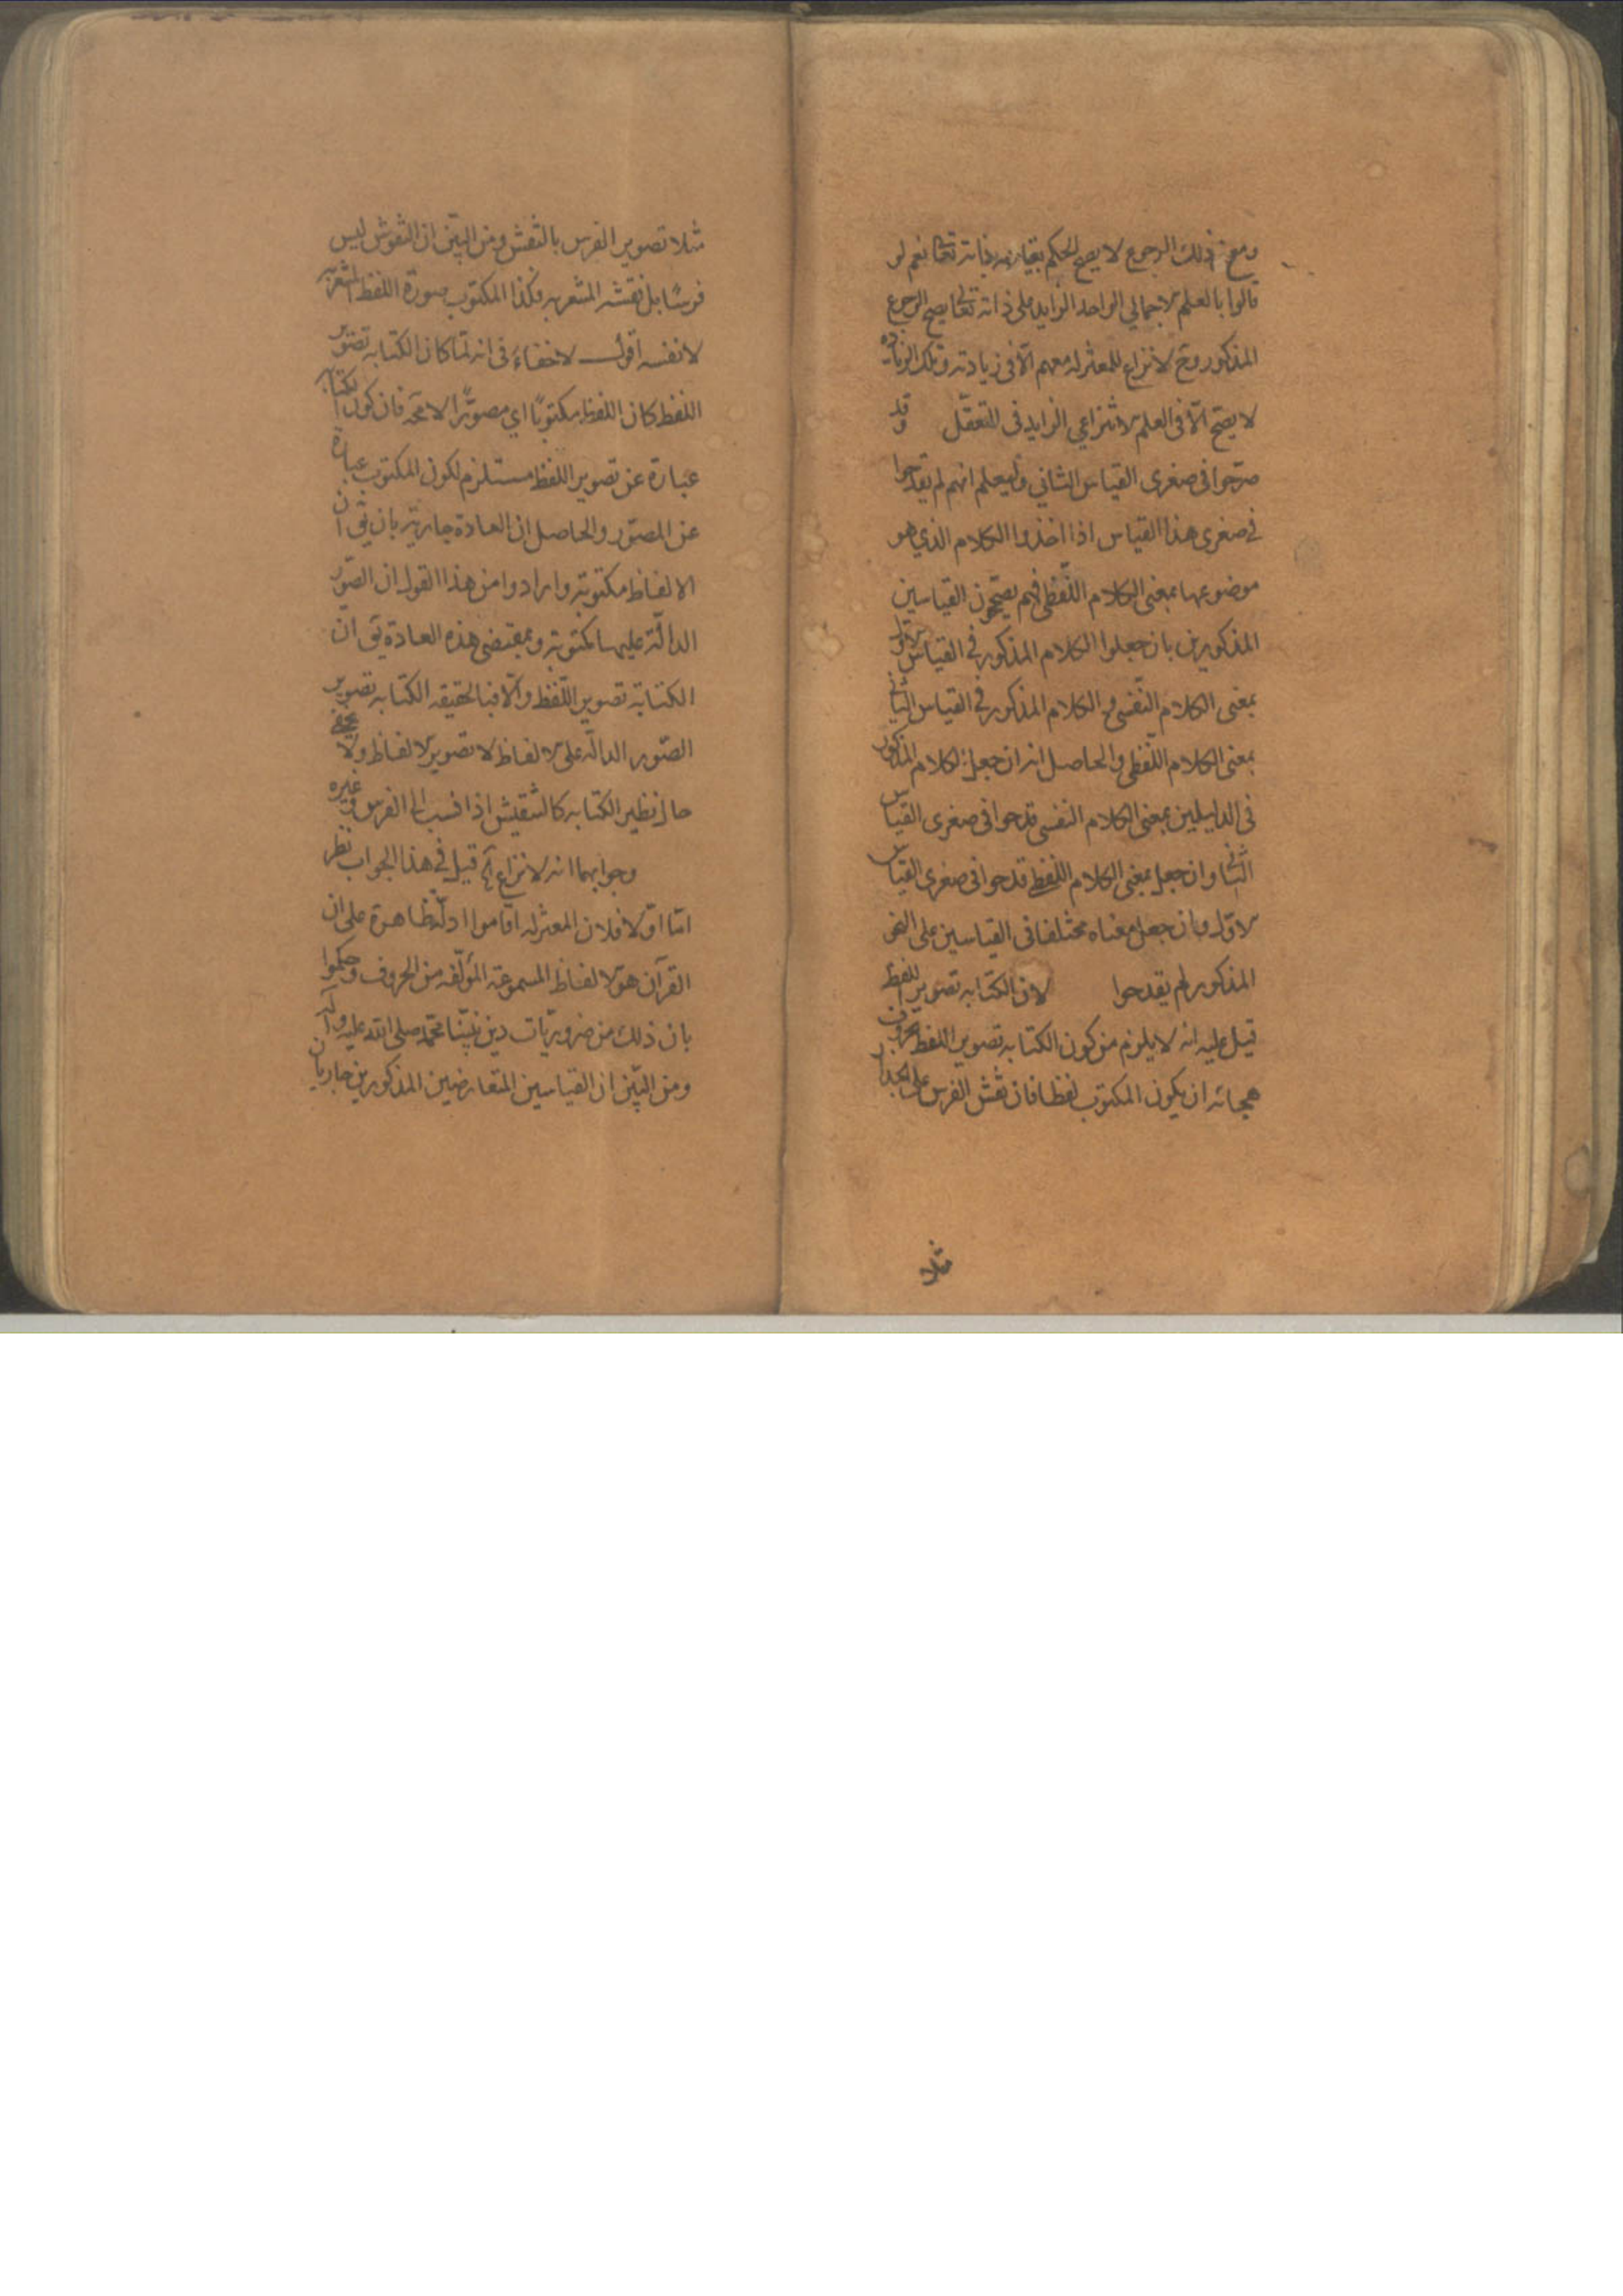 ومع ذلك الرجوع لا يصح الحكم بقيامه بذاته تعا نعم لو
قالوا بالعلم الاجمالي الواحد الزايد على ذاته تعالى يصح الرجوع
المذكور وح لا نزاع للمعتزله معهم الّا في زيادته وتلك الزيادة
لا يصح الّا في العلم الانتزاعي الزايد في التعقّل وقد
صرّحوا في صغرى القياس الثاني وليعلم انهم لم يقدحوا
في صغرى هذا القياس اذا اخذوا الكلام الذي هو
موضوعها بمعنى الكلام اللّفظى فهم يصحّحون القياسين
المذكورين بان جعلوا الكلام المذكور في القياس الاوّل
بمعنى الكلام النّفسي والكلام المذكور في القياس الثاني
بمعنى الكلام اللّفظى والحاصل انه ان جعل الكلام المذكور
في الدليلين بمعنى الكلام النفسى قدحوا في صغرى القياس
الثاني وان جعل بمعنى الكلام اللفظي قدحوا في صغرى القياس
الاوّل وان جعل معناه مختلفا في القياسين على النحو
المذكور لم يقدحوا لان الكتابه تصوير اللفظ
قيل عليه انه لا يلزم من كون الكتابه تصوير اللفظ بحروف
هجائه ان يكون المكتوب لفظا فان نقش الفرس على الجدار
مثلا
مثلا تصوير الفرس بالنقش ومن البيّن ان النقوش ليس
فرسًا بل نقشه المشعر به فكذا المكتوب صورة اللفظ المشعر به
لا نفسه اقول لا خفاء في انه لمّا كان الكتابه تصوير
اللفظ كان اللفظ مكتوبًا اي مصوّرًا لا محة فان كون الكتابة
عبارة عن تصوير اللفظ مستلزم لكون المكتوب عبارة
عن المصوّر والحاصل ان العادة جارية بان يق ان
الالفاظ مكتوبة وارادوا من هذا القول ان الصّور
الدالّة عليها مكتوبة وبمقتضى هذه العادة يق ان
الكتابة تصوير اللّفظ والّا فبالحقيقه الكتابه تصوير
الصّور الدالّه على الالفاظ لا تصوير الالفاظ ولا يخفى
حال نظير الكتابه كالتنقيش اذا نسب الى الفرس وغيره
وجوابهما انه لا نزاع آه قيل في هذا الجواب نظر
امّا اوّلا فلان المعتزله اقاموا ادلّة ظاهرة على ان
القرآن هو الالفاظ المسموعة المؤلّفه من الحروف وحكموا
بان ذلك من ضروريّات دين نبيّنا محمّد صلى الله عليه وآله
ومن البيّن ان القياسين المتعارضين المذكورين جاريان